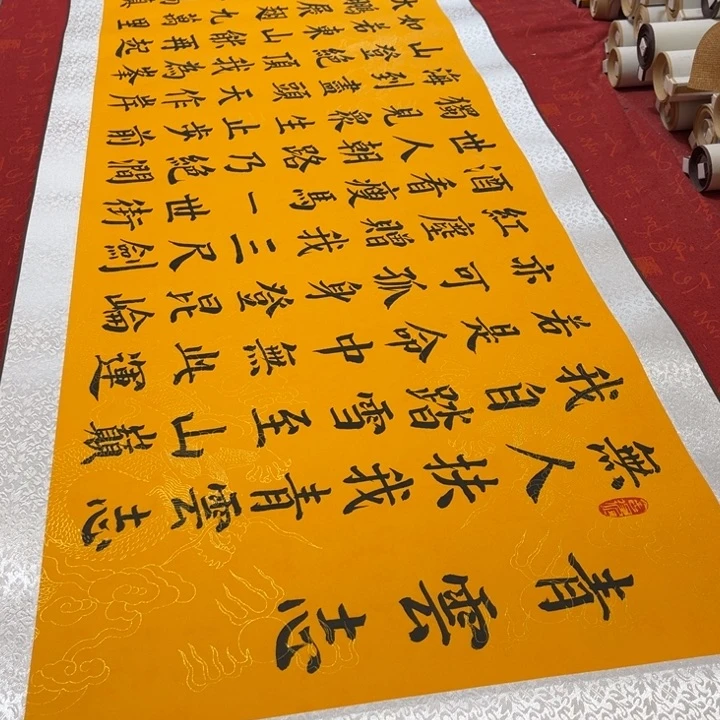 青雲志
無人扶我青雲志
我自踏雪至山巔
若是命中無此運
亦可孤身登昆崙
紅塵贈我三尺劍
酒看瘦馬一世街
世人朝路乃絕澗
獨見眾生止步前
海到盡頭天作岸
山登絕頂我為峯
如若東山能再起
大鵬展翅九萬里